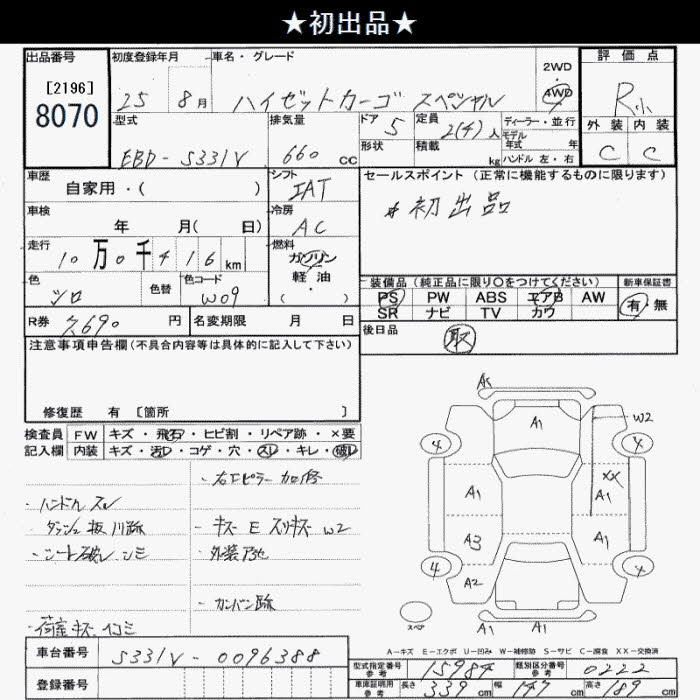 ★初出品★
出品番号 初度登録年月 車名・グレード 2WD 評価点
[2196] 4WD
8070 25 8月 ハイゼットカーゴ スペシャル R小
型式 排気量 ドア 5 定員 2(4)人 ディーラー・並行 外装 内装
モデル
年式 年
EBD-S331V 660 cc 形状 積載 kg ハンドル 左・右 C C
車歴 シフト セールスポイント(正常に機能するものに限ります)
自家用・( ) IAT
車検 冷房 #初出品
年 月( 日) AC
走行 燃料
10万0千416km ガソリン
軽・油
( )
色 色替 色コード 装備品(純正品に限り○をつけてください) 新車保証書
シロ W09 PS PW ABS エアB AW 有・無
R券 7,690円 名変期限 月 日 SR ナビ TV カワ
後日品
取
注意事項申告欄(不具合内容等は具体的に記入して下さい)
修復歴 有 [箇所 ]
検査員 FW キズ・飛石・ヒビ割・リペア跡・×要
記入欄 内装 キズ・汚レ・コゲ・穴・スレ・キレ・破レ
・右Fピラー加修
・ハンドルスレ
・キズ E スリキズ W2
・シート破レ シミ
・カンバン跡
A5
A1 W2
4 4
A1 XX
A1
A3 A1
4 4
A2
スペア A1 A1
A-キズ E-エクボ U-凹み W-補修跡 S-サビ C-腐食 XX-交換済
車台番号 S331V-0096388
型式指定番号 参考 15984 類別区分番号 参考 0222
登録番号
車庫証明用 参考 長さ 339cm 幅 147cm 高さ 189cm